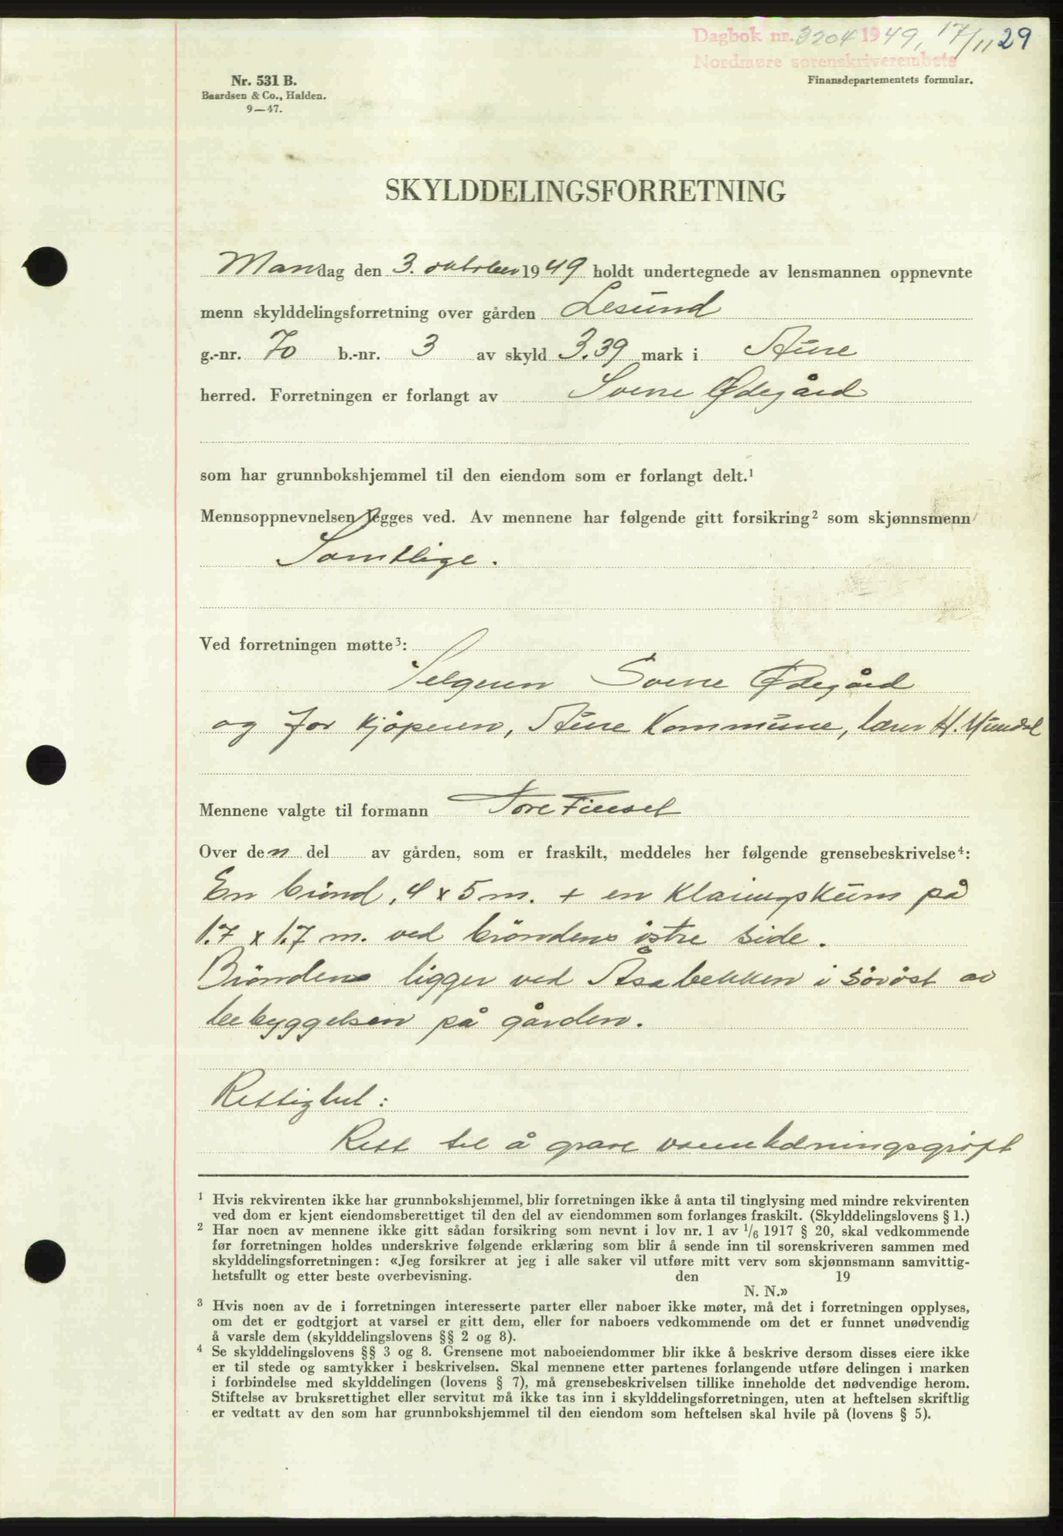 Dagbok nr. 3204 1949, 17/11 29
Nordmøre sorenskriverembete
Nr. 531 B.
Baardsen & Co., Halden.
9—47.
Finansdepartementets formular.
SKYLDDELINGSFORRETNING
Mandag den 3. oktober 1949 holdt undertegnede av lensmannen oppnevnte
menn skylddelingsforretning over gården Lesund
g.-nr. 70 b.-nr. 3 av skyld 3.39 mark i Aure
herred. Forretningen er forlangt av Sverre Ødegård
som har grunnbokshjemmel til den eiendom som er forlangt delt.¹
Mennsoppnevnelsen legges ved. Av mennene har følgende gitt forsikring² som skjønnsmenn
Samtlige.
Ved forretningen møtte³:
Selgeren Sverre Ødegård
og for kjøperen, Aure Kommune, lærer H. Mundal
Mennene valgte til formann Tore Finset
Over den del av gården, som er fraskilt, meddeles her følgende grensebeskrivelse⁴:
En brønd, 4 x 5 m. + en klaringskum på
1.7 x 1.7 m. ved bröndens östre side.
Brönden ligger ved Åsabekken i söröst av
bebyggelsen på gården.
Rettighet:
Rett til å grave vannledningsgröft
¹ Hvis rekvirenten ikke har grunnbokshjemmel, blir forretningen ikke å anta til tinglysing med mindre rekvirenten
ved dom er kjent eiendomsberettiget til den del av eiendommen som forlanges fraskilt. (Skylddelingslovens § 1.)
² Har noen av mennene ikke gitt sådan forsikring som nevnt i lov nr. 1 av 1/6 1917 § 20, skal vedkommende
før forretningen holdes underskrive følgende erklæring som blir å sende inn til sorenskriveren sammen med
skylddelingsforretningen: «Jeg forsikrer at jeg i alle saker vil utføre mitt verv som skjønnsmann samvittig-
hetsfullt og etter beste overbevisning. den 19
N. N.»
³ Hvis noen av de i forretningen interesserte parter eller naboer ikke møter, må det i forretningen opplyses,
om det er godtgjort at varsel er gitt dem, eller for naboers vedkommende om det er funnet unødvendig
å varsle dem (skylddelingslovens §§ 2 og 8).
⁴ Se skylddelingslovens §§ 3 og 8. Grensene mot naboeiendommer blir ikke å beskrive dersom disses eiere ikke
er til stede og samtykker i beskrivelsen. Skal mennene etter partenes forlangende utføre delingen i marken
i forbindelse med skylddelingen (lovens § 7), må grensebeskrivelsen tillike inneholde det nødvendige herom.
Stiftelse av bruksrettighet eller servitut må ikke tas inn i skylddelingsforretningen, uten at heftelsen skriftlig
er vedtatt av den som har grunnbokshjemmel til den eiendom som heftelsen skal hvile på (lovens § 5).